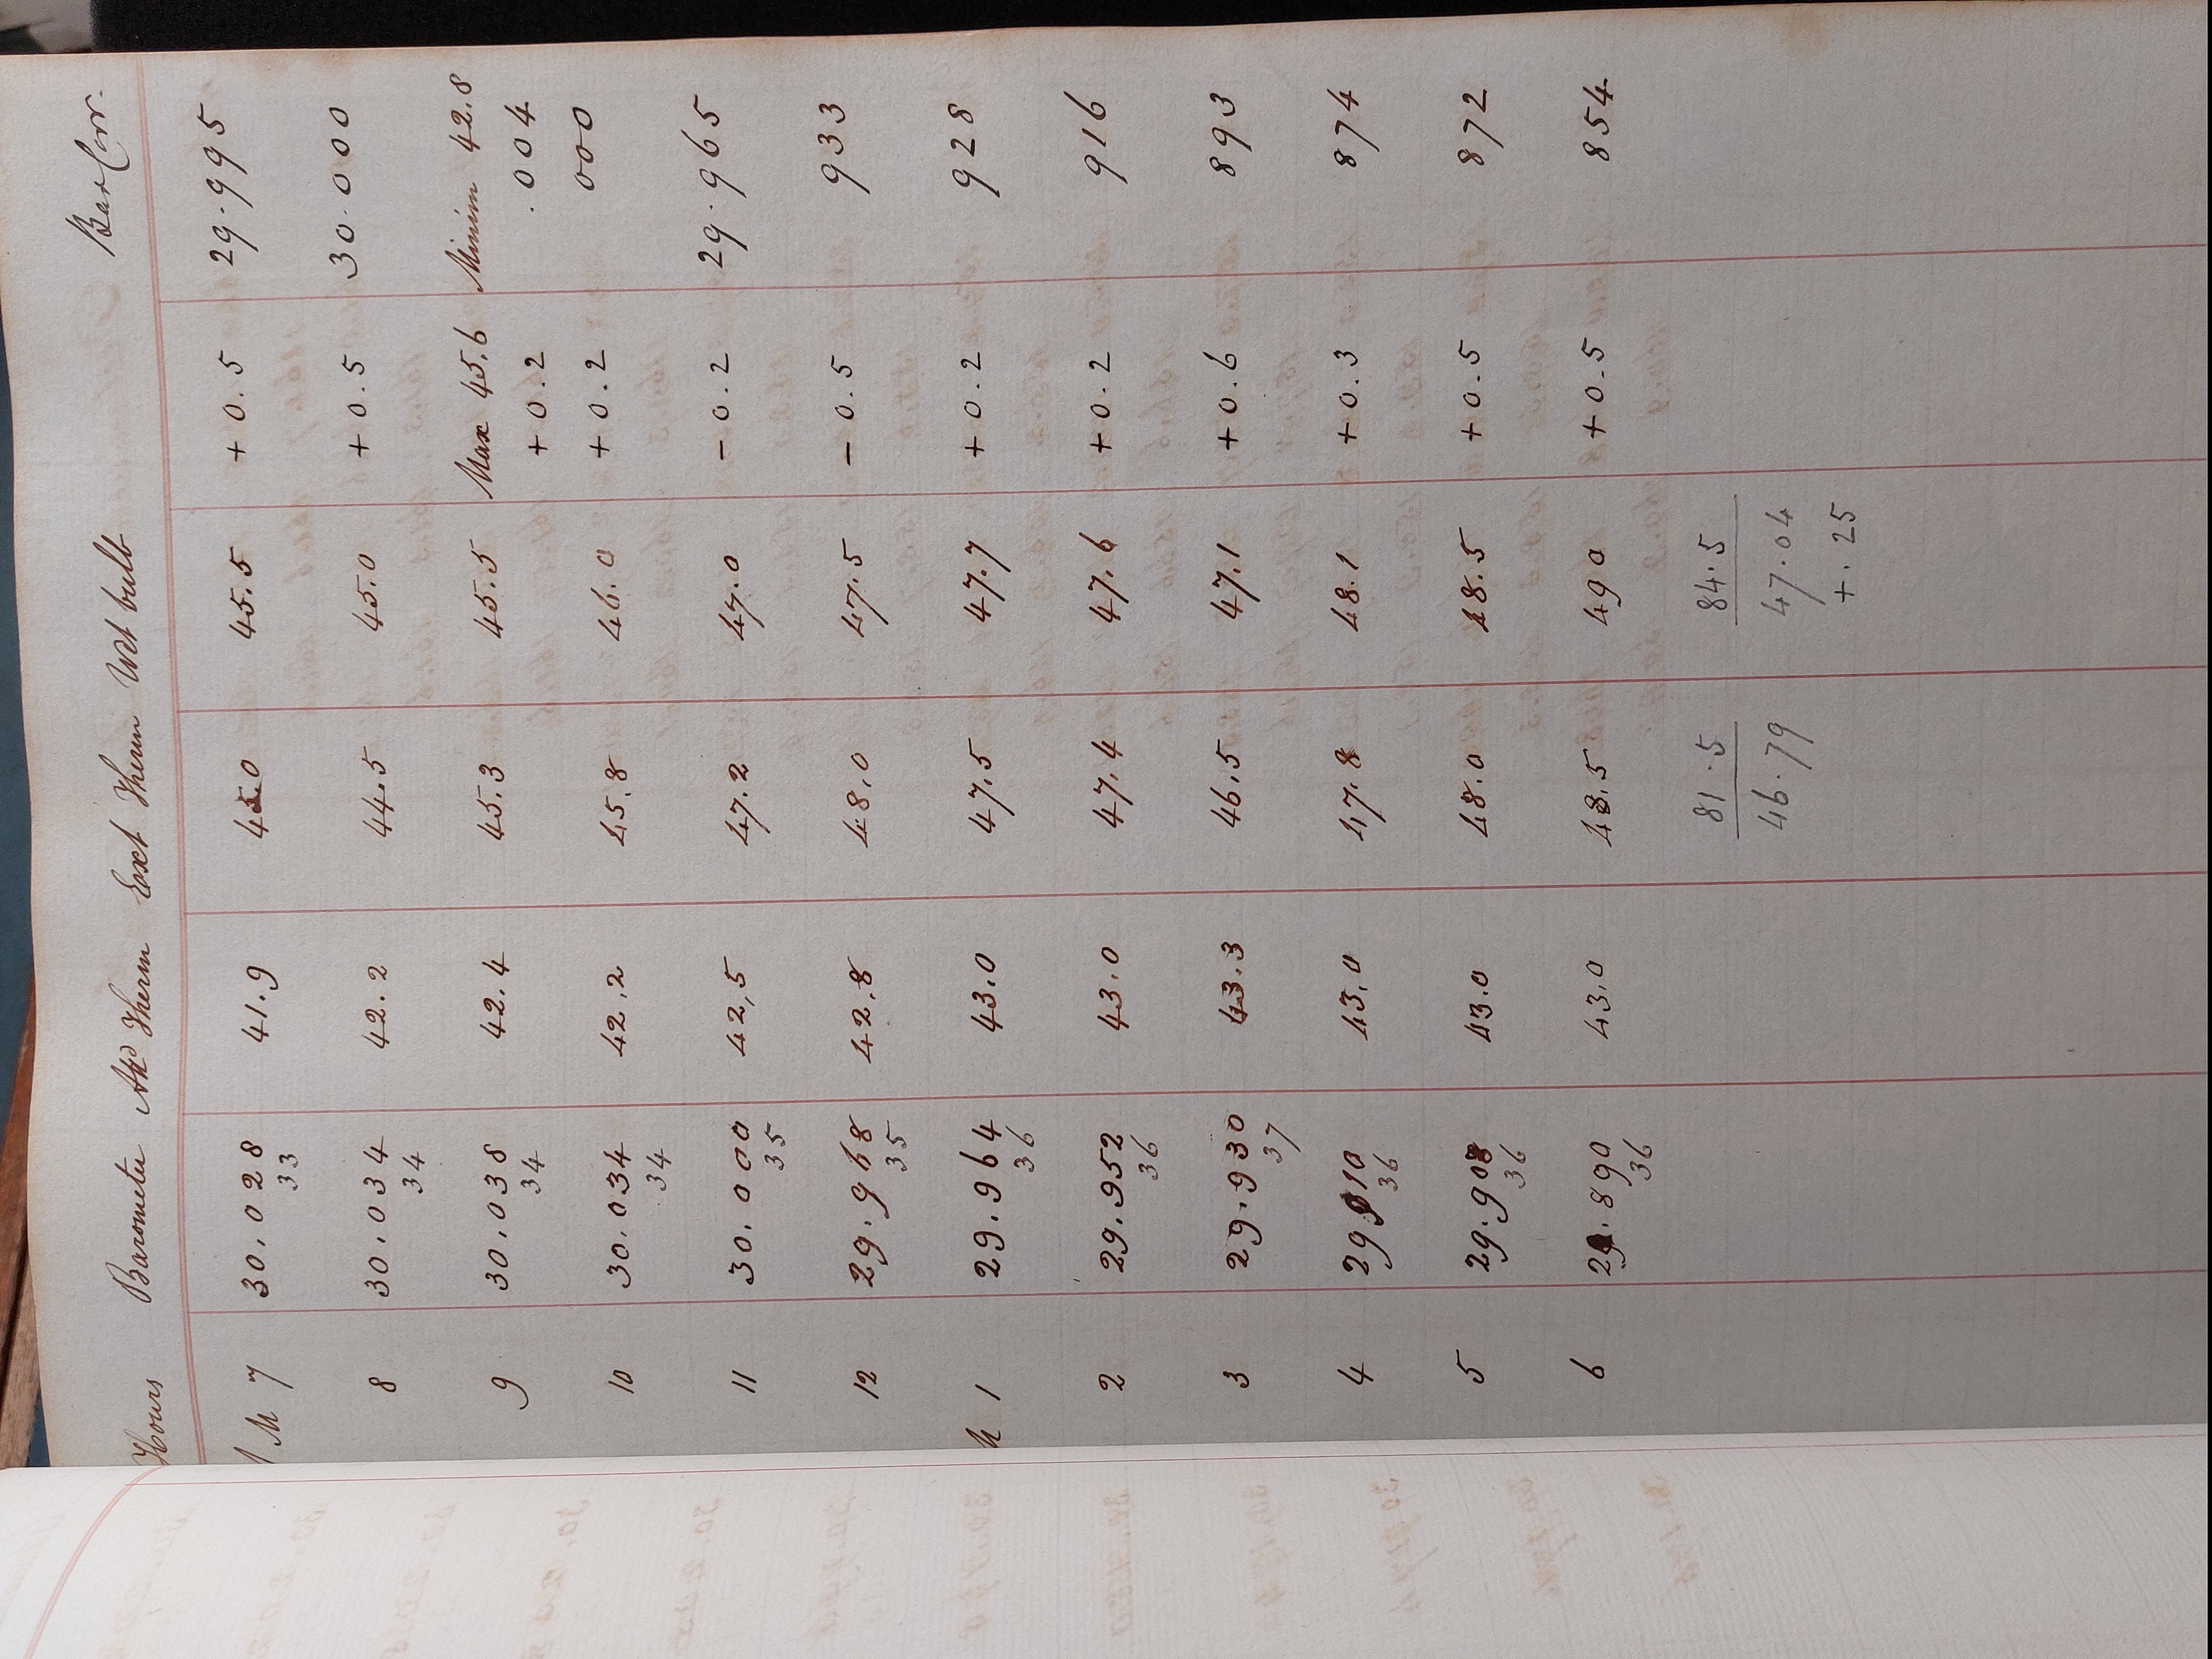 Hours Barometer Attd Therm Ext Therm Wet bulb Bar Corr.
M 7 30.028 41.9 45.0 45.5 + 0.5 29.995
33
8 30.034 42.2 44.5 45.0 + 0.5 30.000
34
9 30.038 42.4 45.3 45.5 Max 45.6 Minim 42.8
34 + 0.2 .004
10 30.034 42.2 45.8 46.0 + 0.2 000
34
11 30.000 42,5 47.2 47.0 - 0.2 29.965
35
12 29.968 42.8 48.0 47.5 - 0.5 933
35
1 29.964 43.0 47.5 47.7 + 0.2 928
36
2 29.952 43.0 47.4 47.6 + 0.2 916
36
3 29.930 43.3 46.5 47.1 + 0.6 893
37
4 29 910 43.0 47.8 48.1 + 0.3 874
36
5 29.908 43.0 48.0 48.5 + 0.5 872
36
6 29.890 43.0 48.5 490 + 0.5 854
36
81.5 84.5
46.79 47.04
+.25